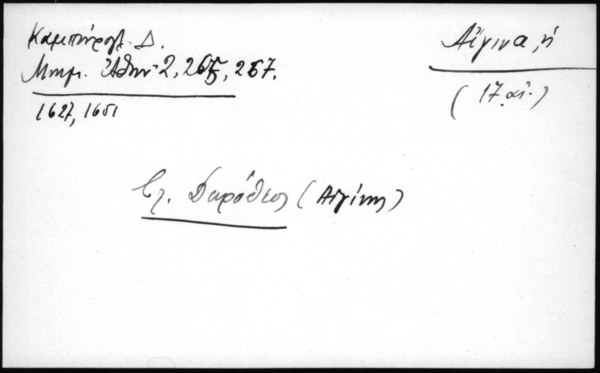 Καμπούρογλ. Δ.
Μνημ. Ἀθην. 2, 265, 267.
1627, 1651
Αἴγινα, ἡ
(17 αἰ.)
Δωρόθεος (Αἰγίνης)